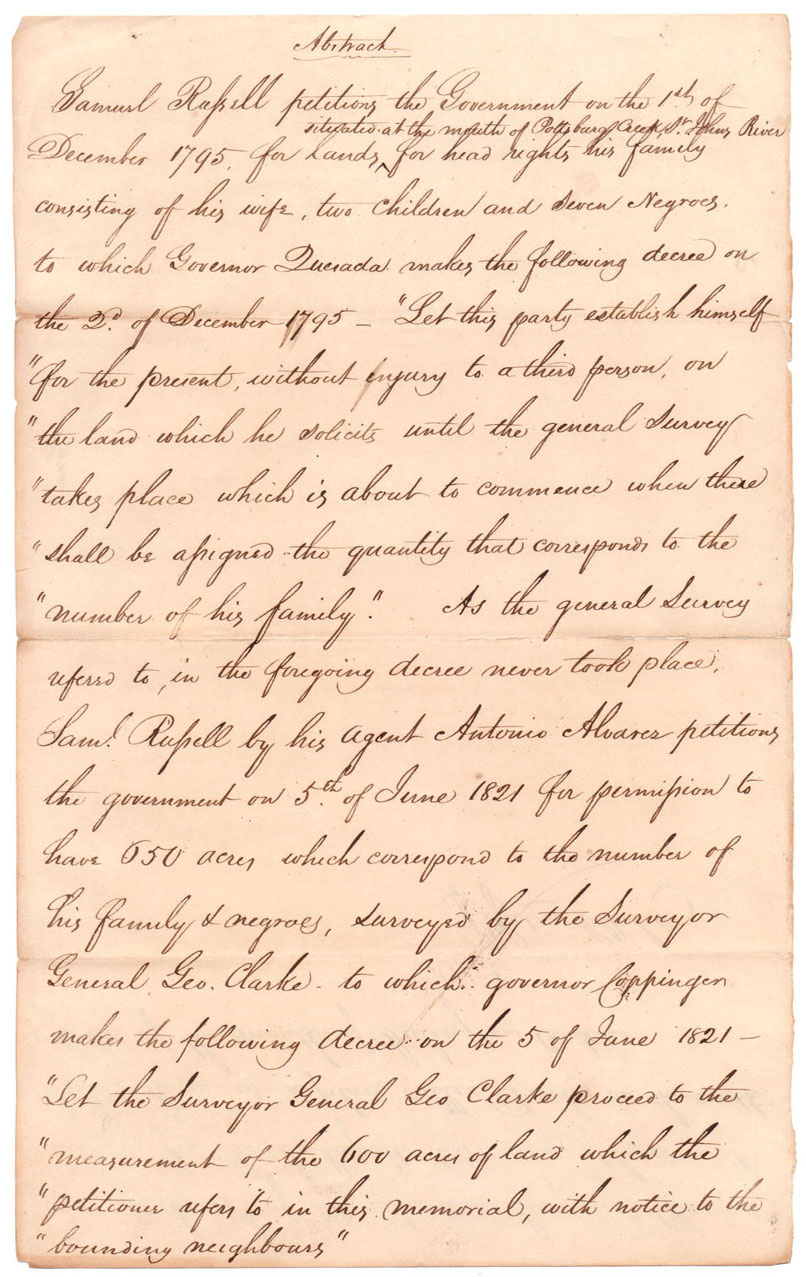 Abstract
Samuel Russell petitions the Government on the 1st of
situated at the mouth of Pottsburg Creek St. Johns River
December 1795, for lands, for head rights his family
consisting of his wife, two Children and Seven Negroes.
to which Governor Quesada makes the following decree on
the 2d. of December 1795 – "Let this party establish himself
"for the present, without injury to a third person, on
"the land which he solicits until the general Survey
"takes place which is about to commence when there
"shall be assigned the quantity that corresponds to the
"number of his family". As the general Survey
refered to, in the foregoing decree never took place,
Saml. Russell by his agent Antonio Alvarez petitions
the government on 5th. of June 1821 for permission to
have 650 acres which correspond to the number of
his family & negroes, surveyed by the Surveyor
General Geo. Clarke – to which governor Coppinger
makes the following decree on the 5 of June 1821 –
"Let the Surveyor General Geo Clarke proceed to the
"measurement of the 600 acres of land which the
"petitioner refers to in this memorial, with notice to the
"bounding neighbours"